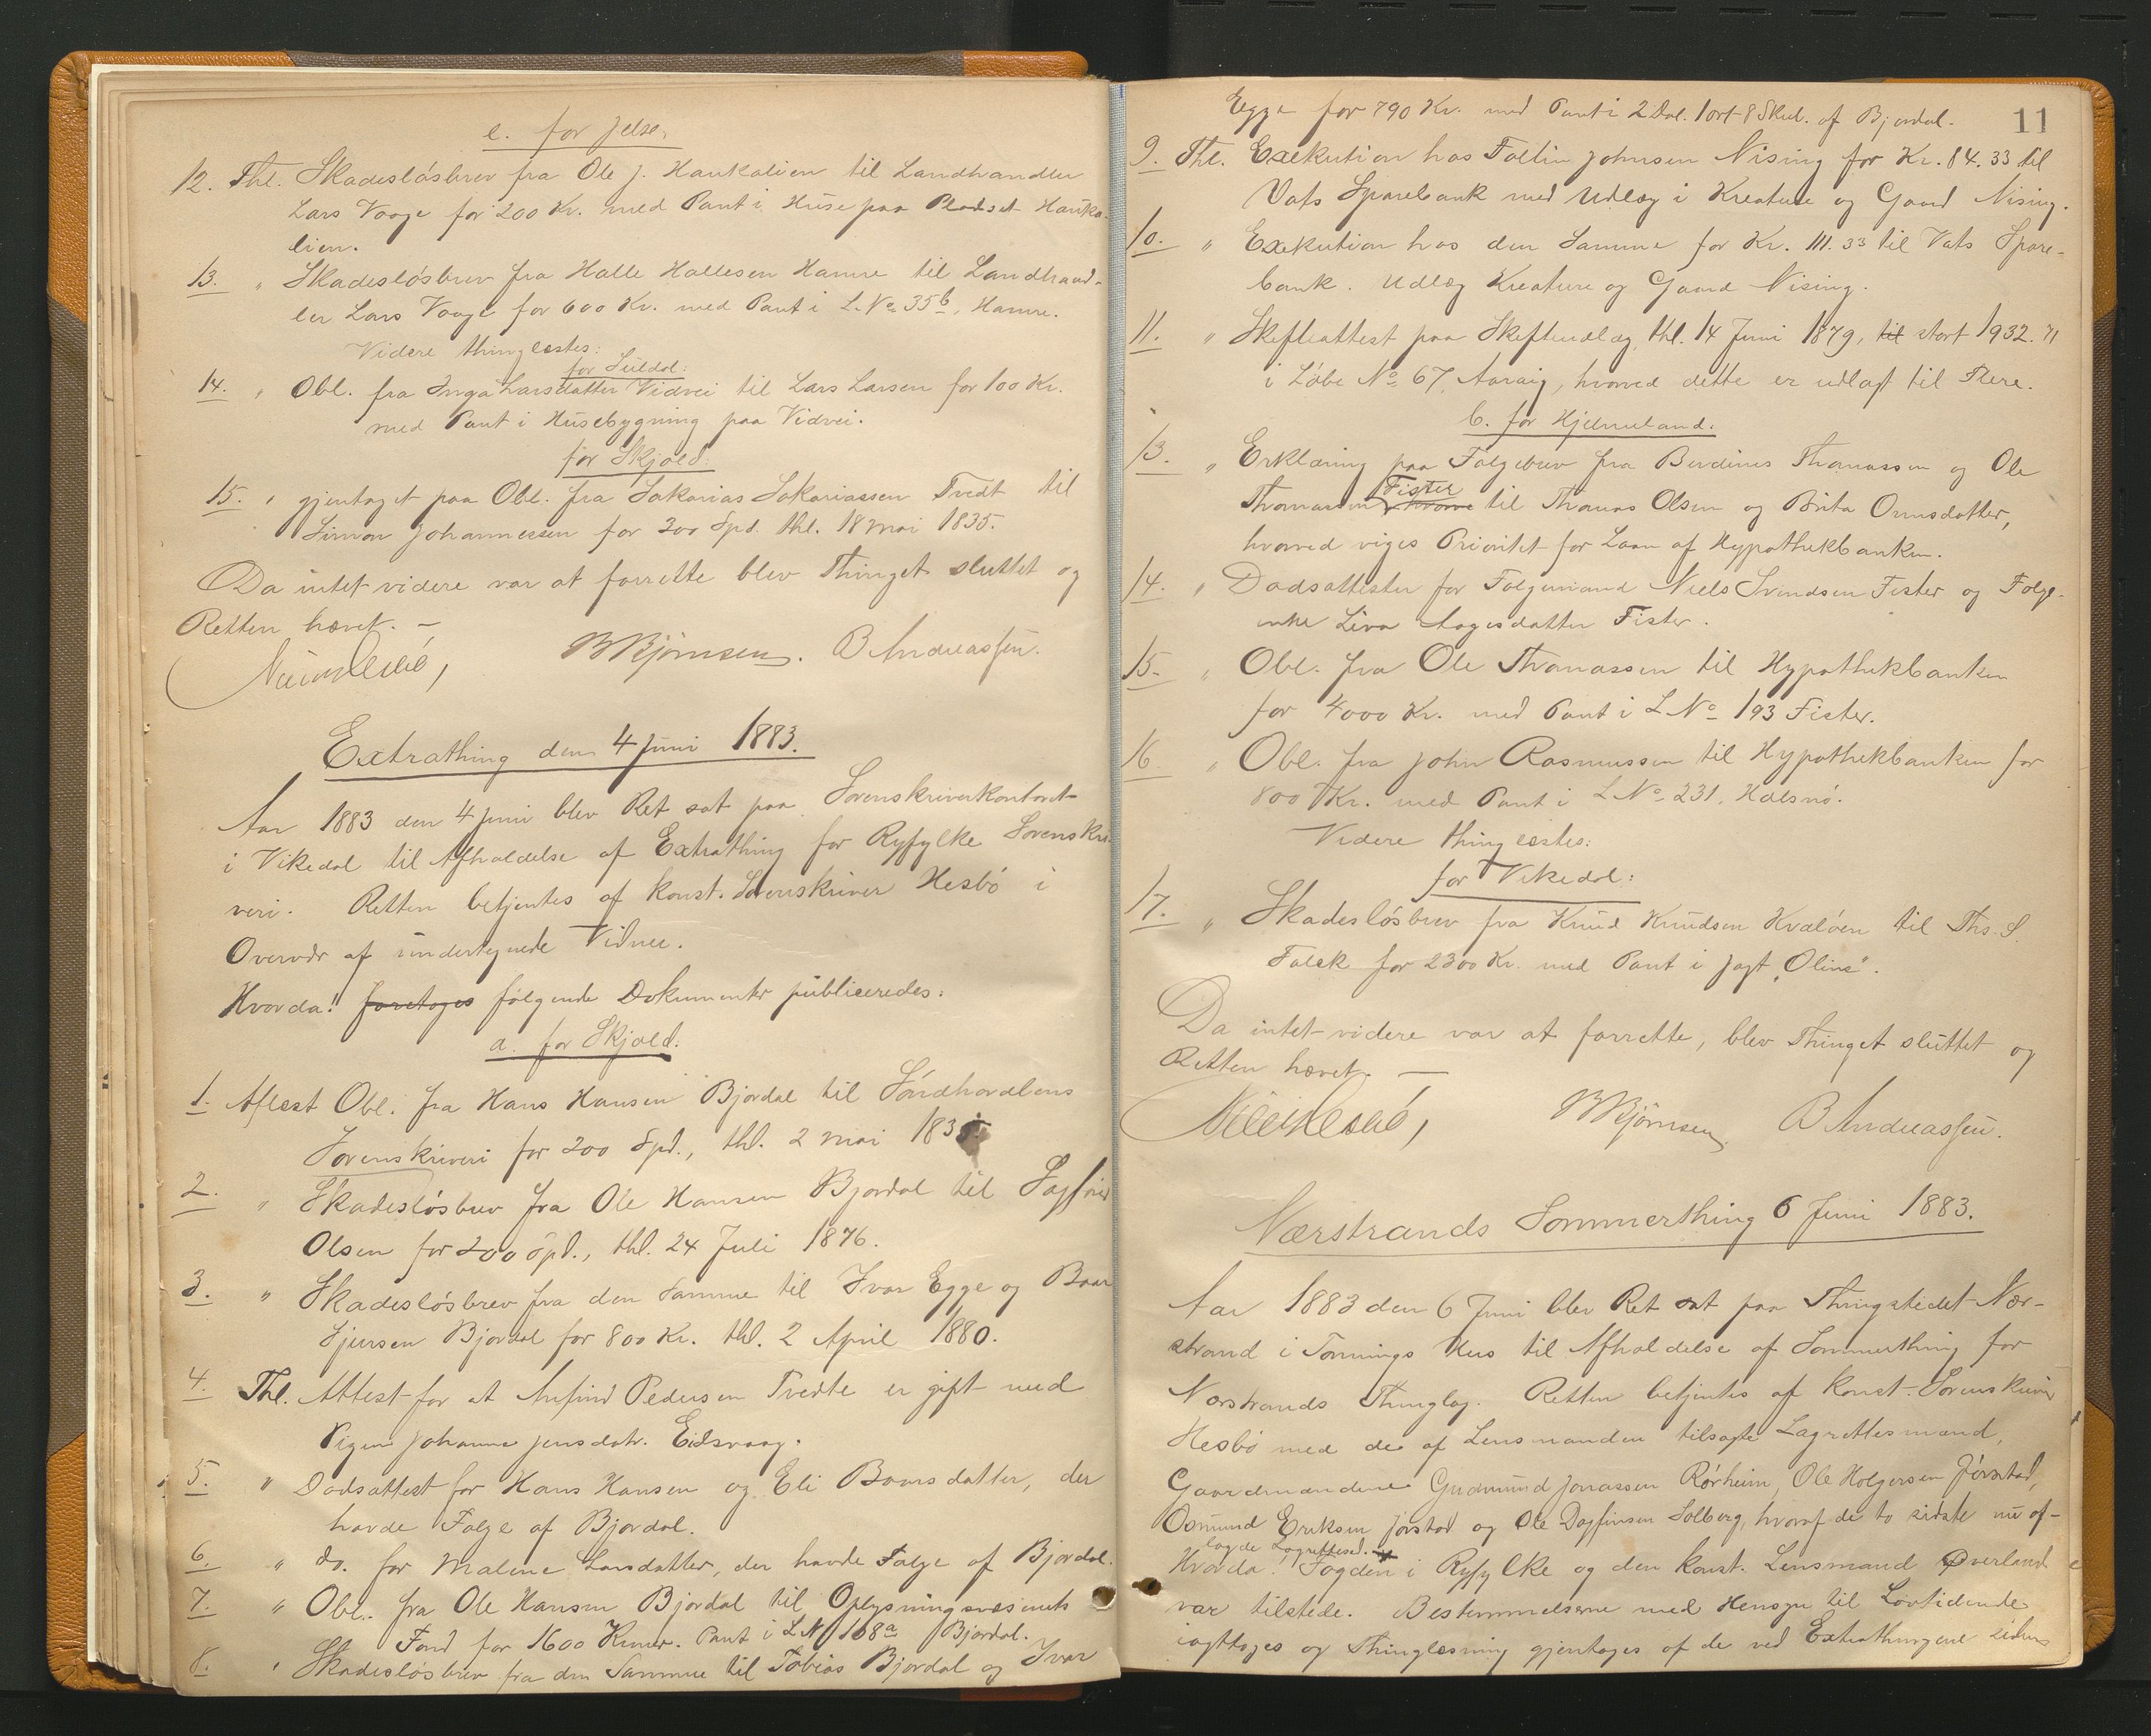 e. for Jelse.
12. Thl. Skadesløsbrev fra Ole J. Haukalien til Landhandler
Lars Vaage for 200 Kr. med Pant i Huse paa Pladset Hauka-
lien.
13. " Skadesløsbrev fra Halle Hallesen Hamre til Landhand-
ler Lars Vaage for 600 Kr. med Pant i L. No 35b, Hamre.
Videre thinglæstes:
for Suldal:
14. " Obl. fra Inga Larsdatter Vidvei til Lars Larsen for 100 Kr.
med Pant i Husebygning paa Vidvei.
for Skjold:
15. " gjentaget paa Obl. fra Sakarias Sakariassen Tvedt til
Simon Johannessen for 200 Spd. thl. 18 Mai 1835.
Da intet videre var at forrette blev Thinget sluttet og
Retten hævet. —
BBjørnsen. B Andreassen.
Extrathing den 4 Juni 1883.
Aar 1883 den 4 Juni blev Ret sat paa Sorenskriverkontoret
i Vikedal til Afholdelse af Extrathing for Ryfylke Sorenskri-
veri. Retten betjentes af konst. Sorenskriver Hesbø i
Overvær af undertegnede Vidner.
Hvorda! foretoges følgende Dokumenter publiceredes:
a. for Skjold.
1. Aflæst Obl. fra Hans Hansen Bjordal til Søndhordlens
Sorenskriveri for 200 Spd., thl. 2 Mai 1835.
2. " Skadesløsbrev fra Ole Hansen Bjordal til
Olsen for 200 Spd., thl. 24 Juli 1876.
3. " Skadesløsbrev fra den Samme til Ivar Egge og Baar
Sjursen Bjordal for 800 Kr. thl. 2 April 1880.
4. Thl. Attest for at Anfind Pedersen Tvedte er gift med
Pigen Johanne Jensdatr. Eidsvaag.
5. " Dødsattest for Hans Hansen og Eli Baarsdatter, der
havde Følge af Bjordal.
6. " do. for Malene Larsdatter, der havde Følge af Bjordal.
7. " Obl. fra Ole Hansen Bjordal til Oplysningsvæsenets
Fond for 1600 Kroner. Pant i L No 168a Bjordal.
8. " Skadesløsbrev fra den Samme til Tobias Bjordal og Ivar
11
Egge for 790 Kr. med Pant i 2 Dal. 1 ort 8 Skil. af Bjordal.
9. Thl. Exekution hos Tollin Johnsen Nising for Kr. 84.33 til
Vats Sparebank med Udlæg i Kreature og Gaard Nising.
10. " Exekution hos den Samme for Kr. 111.33 til Vats Spare-
bank. Udlæg Kreature og Gaard Nising.
11. " Skifteattest paa Skifteudlæg, thl. 14 Juni 1879, til stort 1932.71
i Løbe No 67, Aaraig, hvorved dette er udlagt til Flere.
b. for Hjelmeland.
13. " Erklæring paa Følgebrev fra Berdines Thomassen og Ole
Thomassen Fister til Thomas Olsen og Brita Ormsdatter,
hvorved viges Prioritet for Laan af Hypothekbanken.
14. " Dødsattester for Følgemand Niels Svendsen Fister og Følge-
enke Liva Aagesdatter Fister.
15. " Obl. fra Ole Thomassen til Hypothekbanken
for 4000 Kr. med Pant i L No 193 Fister.
16. " Obl. fra John Rasmussen til Hypothekbanken for
800 Kr. med Pant i L No 231. Halsnø.
Videre thinglæstes:
for Vikedal:
17. " Skadesløsbrev fra Knud Knudsen Kvaløen til Ths. S.
Falck for 2300 Kr. med Pant i Jagt "Oline".
Da intet videre var at forrette, blev Thinget sluttet og
Retten hævet. —
BBjørnsen. B Andreassen.
Nærstrands Sommerthing 6 Juni 1883.
Aar 1883 den 6 Juni blev Ret sat paa Thingstedet Nær-
strand i Tonnings Hus til Afholdelse af Sommerthing for
Nærstrands Thinglag. Retten betjentes af konst. Sorenskriver
Hesbø med de af Lensmanden tilsagte Lagrettesmænd,
Gaardmændene Gudmund Jonassen Rørheim, Ole Holgersen Jørstad,
Osmund Eriksen Jørstad og Ole Dagfinsen Solberg, hvoraf de to sidste nu af-
lagde Lagrettesed.
Hvorda! Fogden i Ryfylke og den konst. Lensmand Øverland
var tilstede. Bestemmelserne med Hensyn til Lovtidende
iagttoges og Thinglæsning gjentoges af de ved Extrathingene siden